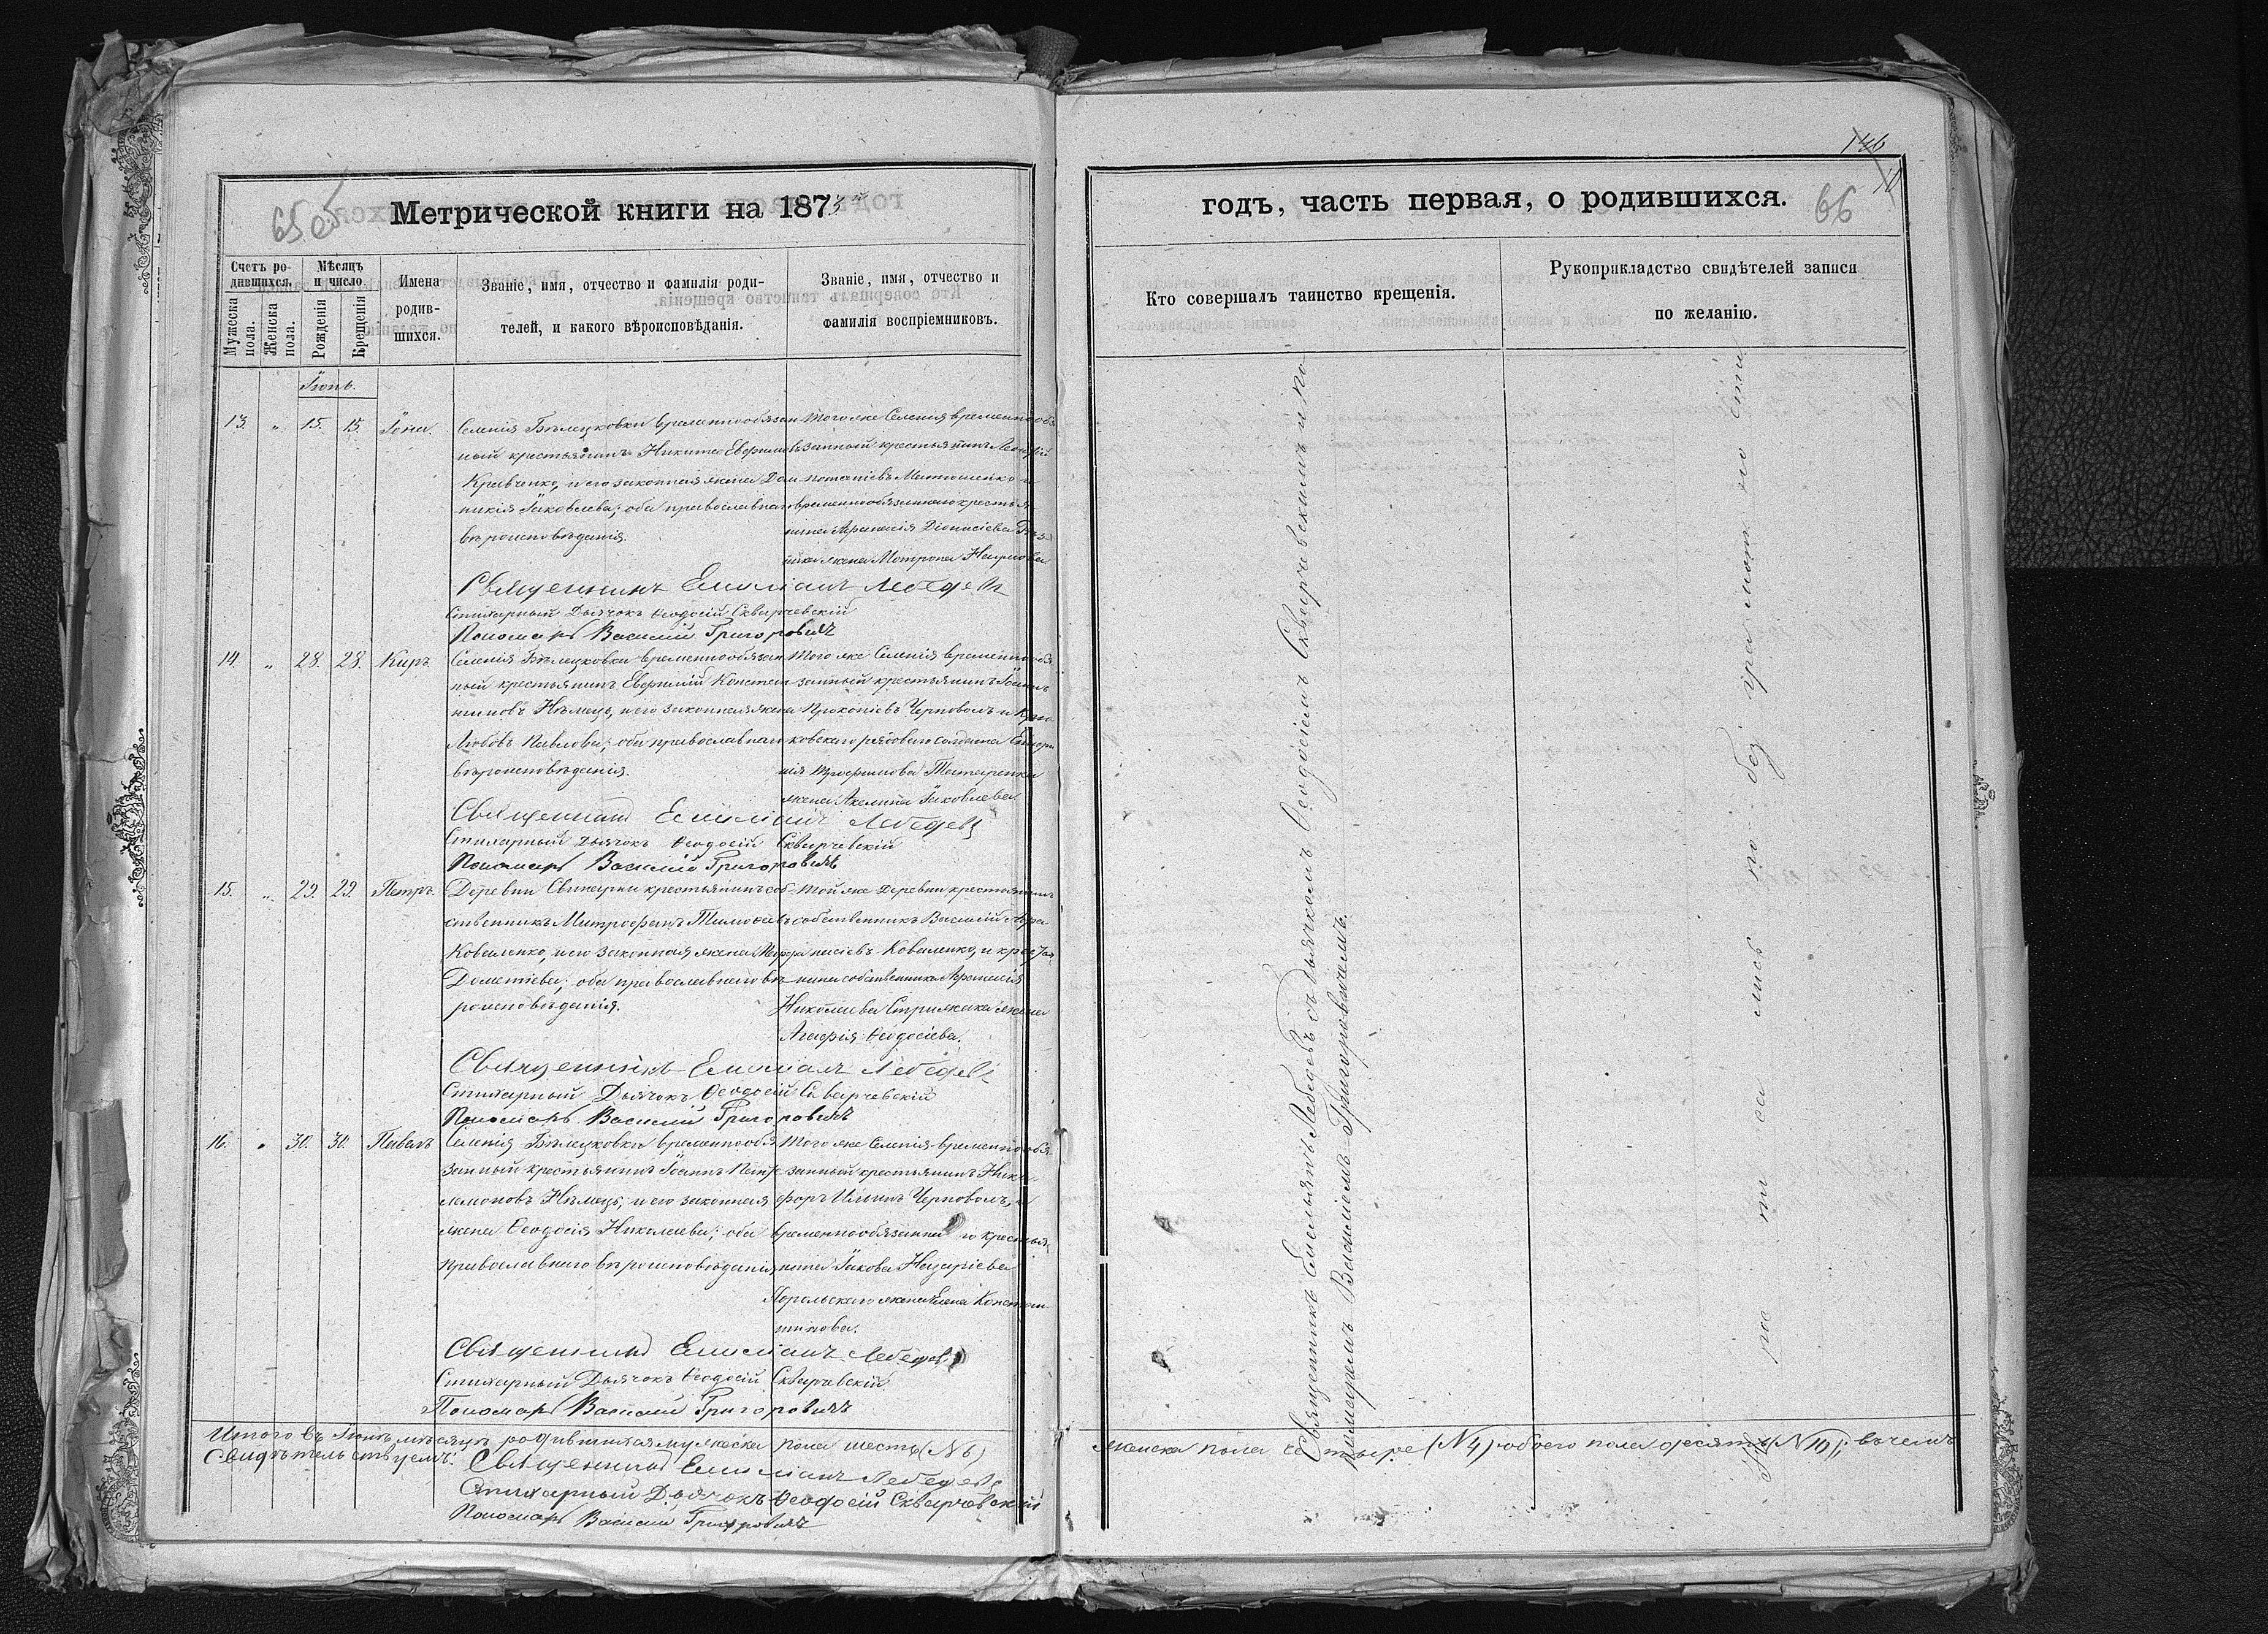 146
10
65об
Метрической книги на 1873й
годъ, часть первая, о родившихся.
66
Счетъ ро-
дившихся.
Мужеска
пола.
Женска
пола.
Мѣсяцъ
и число
Рожденія
Крещенія
Имена
родив-
шихся.
Званіе, имя, отчество и фамилія роди-
телей, и какого вѣроисповѣданія.
Званіе, имя, отчество и
фамилія воспріемниковъ.
Кто совершалъ таинство крещенія.
Рукоприкладство свидѣтелей записи
по желанію.
Іюнь.
13. „ 15. 15. Іона.
Селенія Бѣлецковки временнообязан
ный крестьянинъ Никита Евфимовъ
Кравченко, и его законная жена Дом
никія Іаковлева; оба православнаго
вѣроисповѣданія.
Того же Селенія временнообя
занный крестьянинъ
Потапіевъ Митюшенко и
временнообязаннаго крестья
нина Афанасія Діонисіева
жена Мотрона
Священникъ Емиліанъ Лебедевъ
Стихарный Дьячокъ Ѳеодосій Скварчевскій
Пономарь Василій Григоровичъ
14. „ 28. 28. Киръ.
Селенія Бѣлецковки временнообязан
ный крестьянинъ Евфимій Констан
тиновъ Нѣмецъ, и его законная жена
Любовь Павлова; оба православнаго
вѣроисповѣданія.
Того же Селенія временнообя
занный крестьянинъ Іоаннъ
Прокопіевъ Черноволъ и
рядоваго солдата
Трофимова Татаренка
жена Акелина Іаковлева.
Священникъ Емиліанъ Лебедевъ
Стихарный Дьячокъ Ѳеодосій Скварчевскій
Пономарь Василій Григоровичъ
15. „ 29. 29. Петръ.
Деревни Свинарни крестьянинъ соб
ственникъ Митрофанъ Тимоѳеевъ
Коваленко, и его законная жена
Дометіева; оба православнаго вѣ
роисповѣданія.
Той же деревни крестьянинъ
собственникъ Василій Афа
насіевъ Коваленко, и крестья
нина собственника Афанасія
Николаева Стрижака жена
Агафія Ѳеодосіева.
Священникъ Емиліанъ Лебедевъ
Стихарный Дьячокъ Ѳеодосій Скварчевскій
Пономарь Василій Григоровичъ
16. „ 30. 30. Павелъ
Селенія Бѣлецковки временнообя
занный крестьянинъ Іоаннъ Панте
лемоновъ Нѣмецъ, и его законная
жена Ѳеодосія Николаева; оба
православнаго вѣроисповѣданія
Того же Селенія временнообя
занный крестьянинъ Ники
форъ Ильинъ Черноволъ, и
временнообязаннаго крестья
нина Іакова Назаріева
Хорольскаго жена Елена Констан
тинова.
Священникъ Емиліанъ Лебедевъ
Стихарный Дьячокъ Ѳеодосій Скварчевскій
Пономарь Василій Григоровичъ
Итого въ Іюнѣ мѣсяцѣ родившихся мужеска пола шесть (№ 6)
женска пола четыре (№ 4) обоего пола десять (№ 10); въ чемъ
Свидѣтельствуемъ: Священникъ Емиліанъ Лебедевъ
Стихарный Дьячокъ Ѳеодосій Скварчевскій
Пономарь Василій Григоровичъ
Священникъ Емиліянъ Лебедевъ съ Дьячкомъ Ѳеодосіемъ Скварчевскимъ и по-
номаремъ Василіемъ Григоровичемъ.
Не рас пи са лись по без гра мот но сти